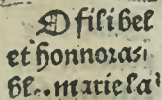 O fili bel
et honnoras
bl.. marie la